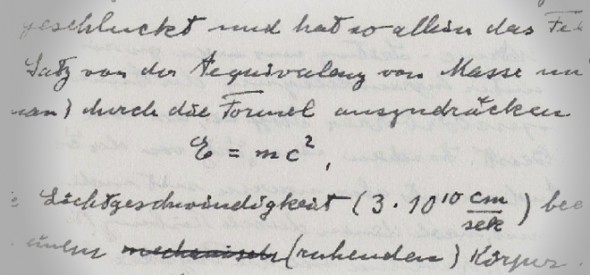 geschluckt und hat so allein das Fe
Satz von der Aequivalenz von Masse un
man) durch die Formel auszudrücken
E = mc²,
Lichtgeschwindigkeit (3 . 10¹⁰ cm/sek) bec
einen mechanisch (ruhenden) Körper.